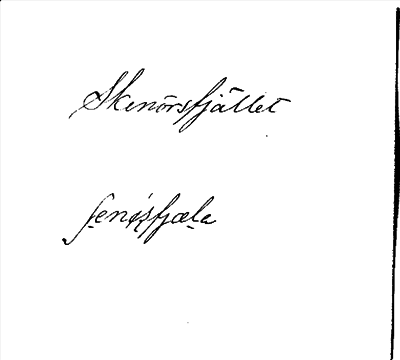 Skenörsfjället
ʃenø̀sfjæla